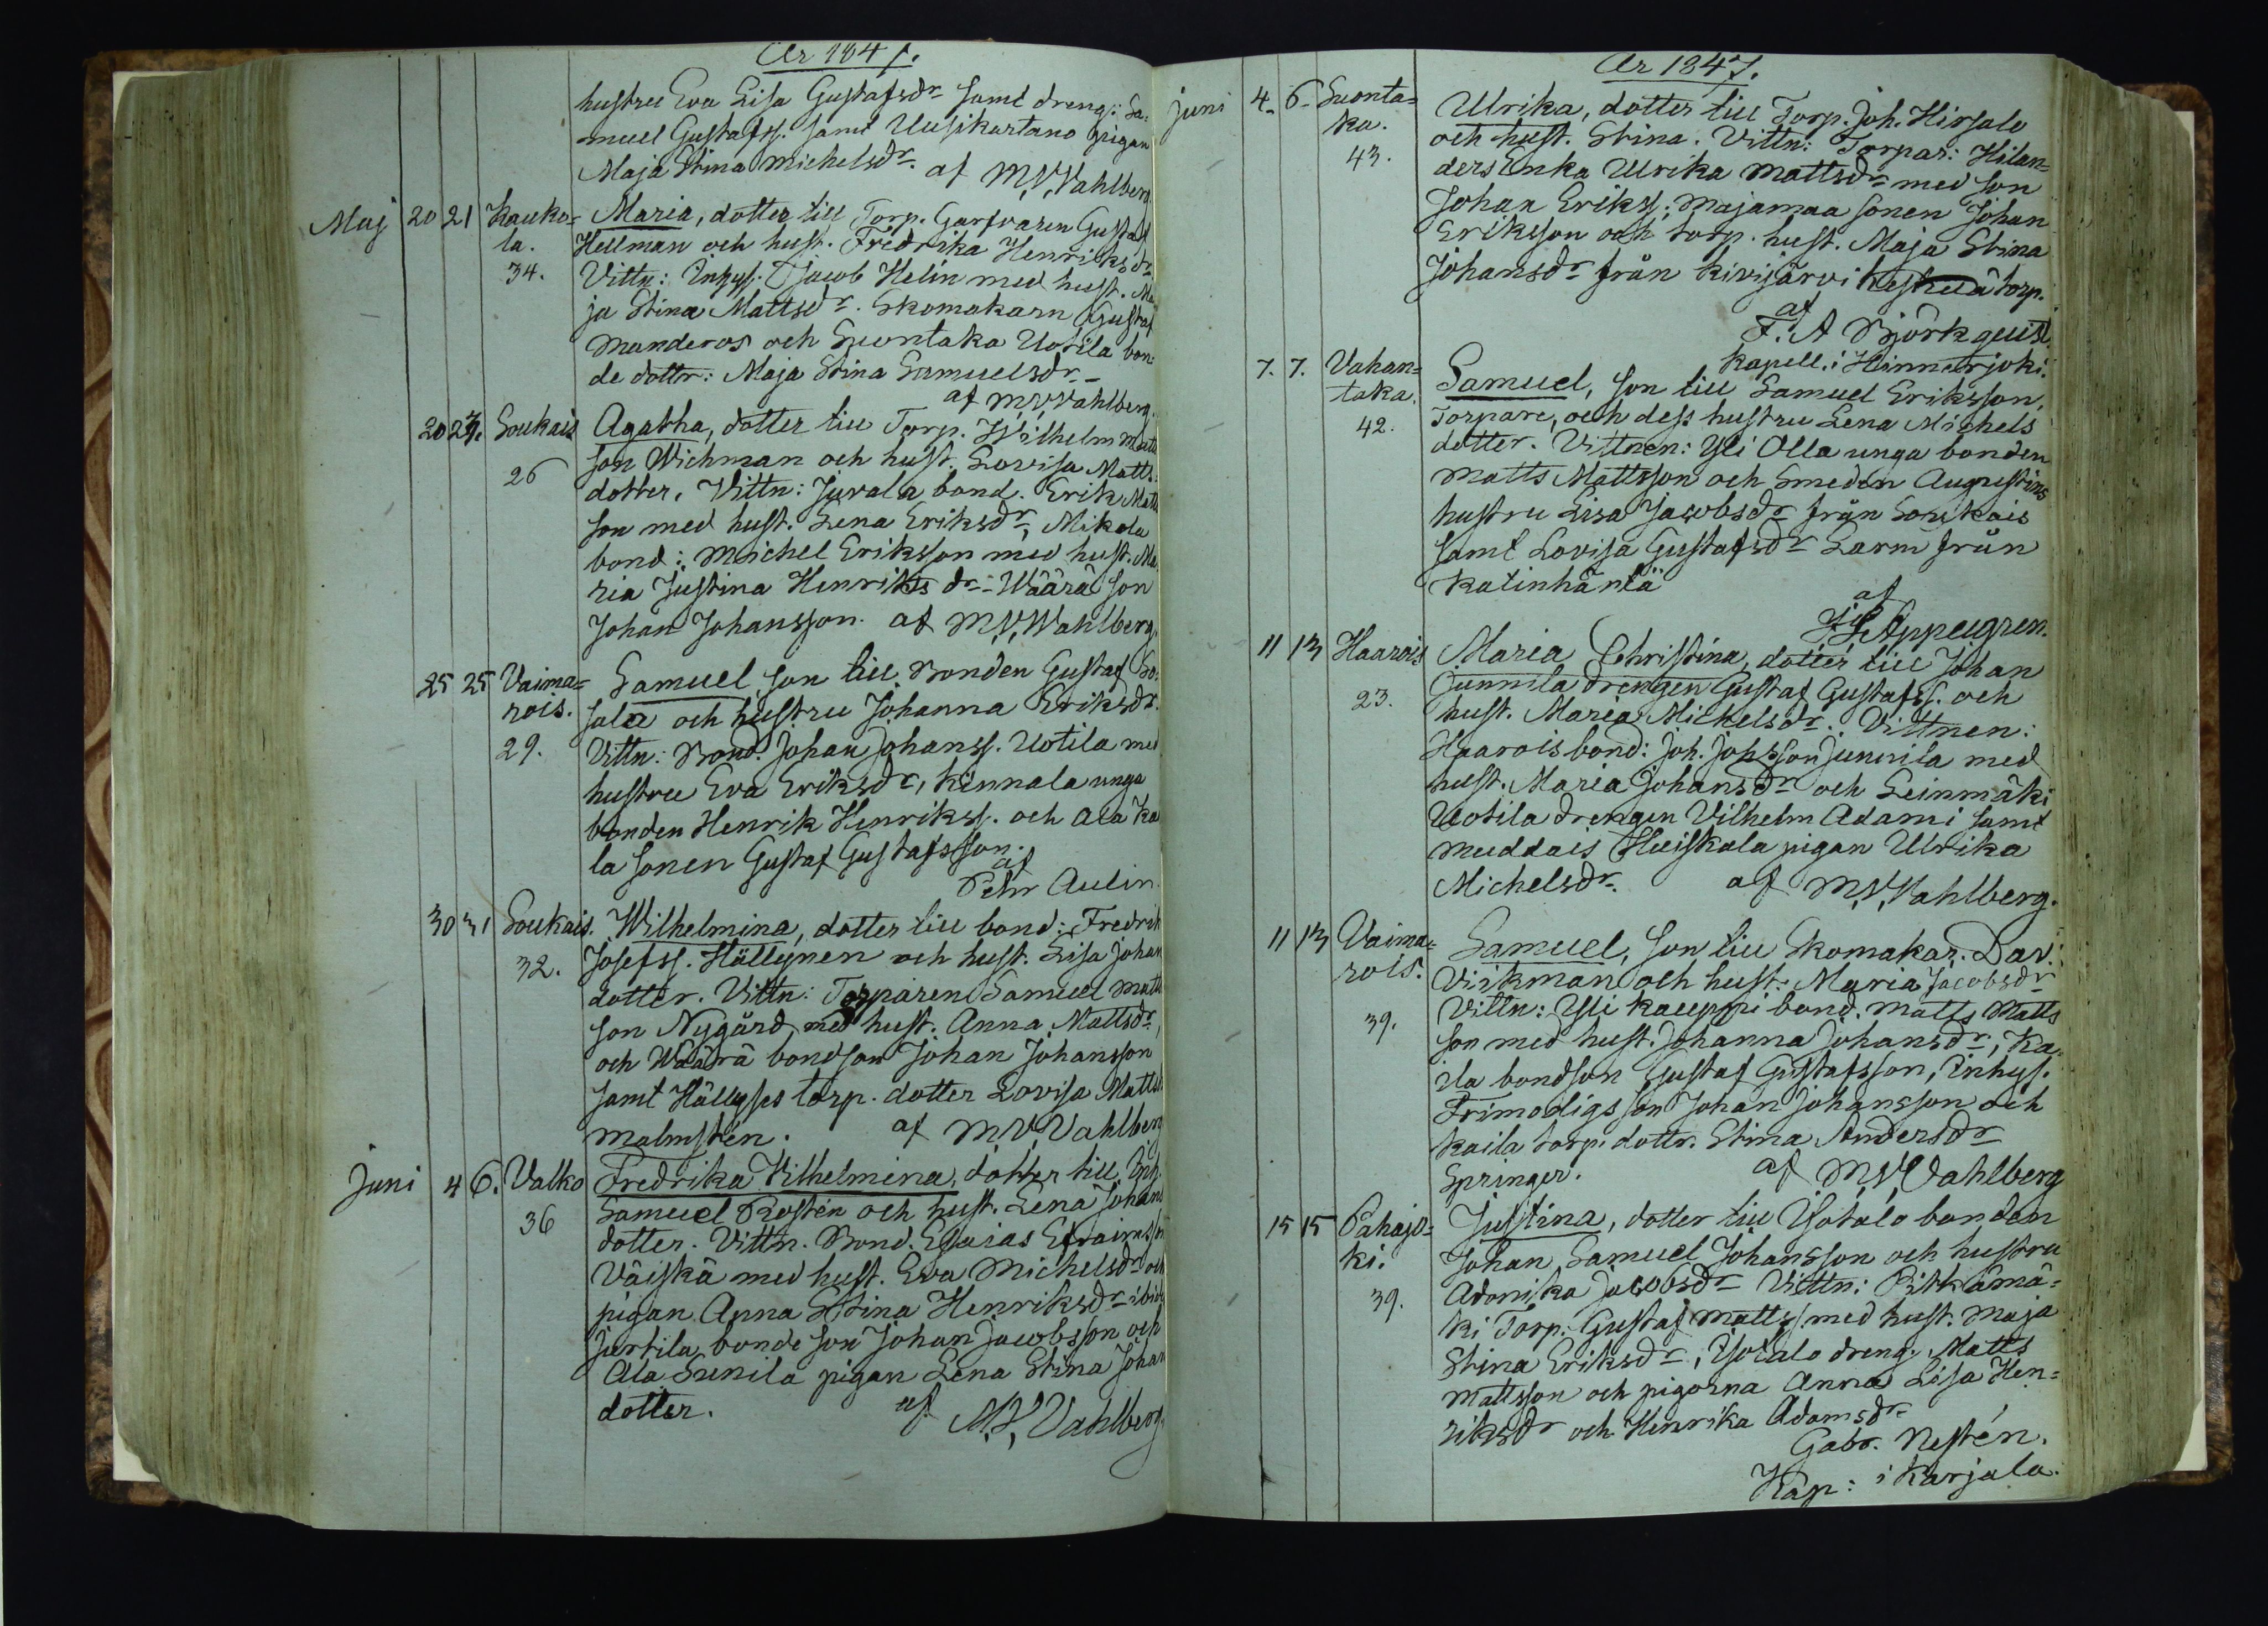 År 1847.
hustru Eva Lisa Gustafsdr samt dreng: Sa-
muel Gustafss. samt Uusikartano pigan
Maja Stina Michelsdr. af M.V. Vahlberg.
Maj 20 21 Kauko- Maria, dotter till Torp. Garfvaren Gustaf
la. Hellman och hust. Fredrika Henriksdr
34. Vittn: Inhys. Jacob Helin med hust. Ma
ja Stina Mattsdr. Skomakarn Gustaf
Manderos och Suontaka Uotila bon-
de dottr: Maja Stina Samuelsdr.
af M.V. Vahlberg.
20 27. Soukais Agatha, dotter till Torp. Wilhelm Matts
26 son Wichman och hust. Lovisa Matts
dotter. Vittn: Juvala bond. Erik Matts
son med hust. Lena Eriksdr, Mikola
bond: Michel Eriksson med hust. Ma
ria Justina Henriks dr. Wäärä son
Johan Johansson. af M.V. Wahlberg.
25 25 Vaima= Samuel, son till Bonden Gustaf So-
rois. sala och hustru Johanna Eriksdr.
29. Vittn: Bond. Johan Johanss. Uotila med
hustru Eva Eriksdr, Kinnala unga
bonden Henrik Henrikss. och Ala Ka
la sonen Gustaf Gustafsson.
af
Pehr Aulin.
30 31 Soukais. Wilhelmina, dotter till bond: Fredrik
32. Josefss. Hällynen och hust. Lisa Johan
dotter. Vittn: Torparen Samuel Matts
son Nygård med hust. Anna Mattsdr,
och Wäärä bondson Johan Johansson
samt Hällyses torp. dotter Lovisa Mattsdr
Malmstén. af M.V. Vahlberg
Juni 4 6. Valko Fredrika Vilhelmina, dotter till Inh.
36 Samuel Rostén och hust. Lena Johans
dotter. Vittn. Bond. Esaias Efraimsson
Väiskä med hust. Eva Michelsdr och
pigan Anna Stina Henriksdr ibid.
Jertila bonde son Johan Jacobsson och
Ala Sunila pigan Lena Stina Johan
dotter. af M.V. Vahlberg
År 1847.
Juni 4. 6. Suonta= Ulrika, dotter till Torp. Joh. Hirsalo
ka. och hust. Stina. Vittn: Torpar: Hilan=
43. ders Enka Ulrika Mattsdr med son
Johan Erikss; Majamaa sonen Johan
Eriksson och torp. hust. Maja Stina
Johansdr från Kivijärvi torp.
af
F. A Björkquist
kapell. i Hinnerjoki.
7. 7. Vahan= Samuel, son till Samuel Eriksson,
taka. Torpare, och dess hustru Lena Michels
42. dotter. Vittnen: Yli Olla unga bonden
Matts Mattsson och Smeden Augustins
hustru Lisa Jacobsdr från Soukais
samt Lovisa Gustafsdr Larm från
Katinhäntä
af
Appelgren.
11 13 Haarois Maria Christina, dotter till Johan
23. Junnila drengen Gustaf Gustafss. och
hust. Maria Michelsdr. Vittnen:
Haarois bond: Joh. Johsson Junnila med
hust. Maria Johansdr och Leinmäki
Uotila drengen Vilhelm Adami samt
Muddais Huiskala pigan Ulrika
Michelsdr. af M.V. Vahlberg.
11 13 Vaima= Samuel, son till Skomakar. Dav.
rois. Virkman och hust. Maria Jacobsdr
39. Vittn: Yli Kauppi bond. Matts Matts
son med hust. Johanna Johansdr, Ka-
ila bondson Gustaf Gustafsson, Inhys.
Frimodigs son Johan Johansson och
Kaila torp. dottr. Stina Andersdr
Springer. af M.V. Vahlberg
15 15 Pahajo= Justina, dotter till Isotalo bonden
ki. Johan Samuel Johansson och hustru
39. Adonika Jacobsdr Vittn: Pitkämä=
ki Torp. Gustaf Mattss. med hust. Maja
Stina Eriksdr, Isotalo dreng. Matts
Mattsson och pigorna Anna Lisa Hen=
riksdr och Henrika Adamsdr.
Gabr. Nestén.
Kap: i Karjala.